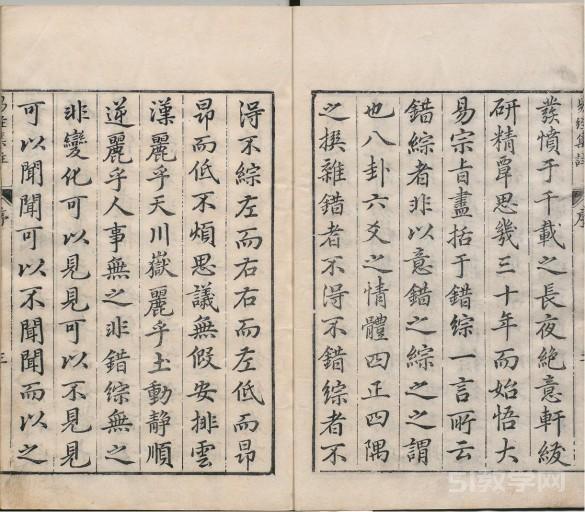 發憤于千載之長夜絶意軒紱
研精覃思幾三十年而始悟大
易宗旨盡括于錯綜一言所云
錯綜者非以意錯之綜之之謂
也八卦六爻之情體四正四隅
之撰雜錯者不得不錯綜者不
得不綜左而右右而左低而昂
昂而低不煩思議無假安排雲
漢麗乎天川嶽麗乎土動静順
逆麗乎人事無之非錯綜無之
非變化可以見見可以不見見
可以聞聞可以不聞聞而以之
序
三
51教学网